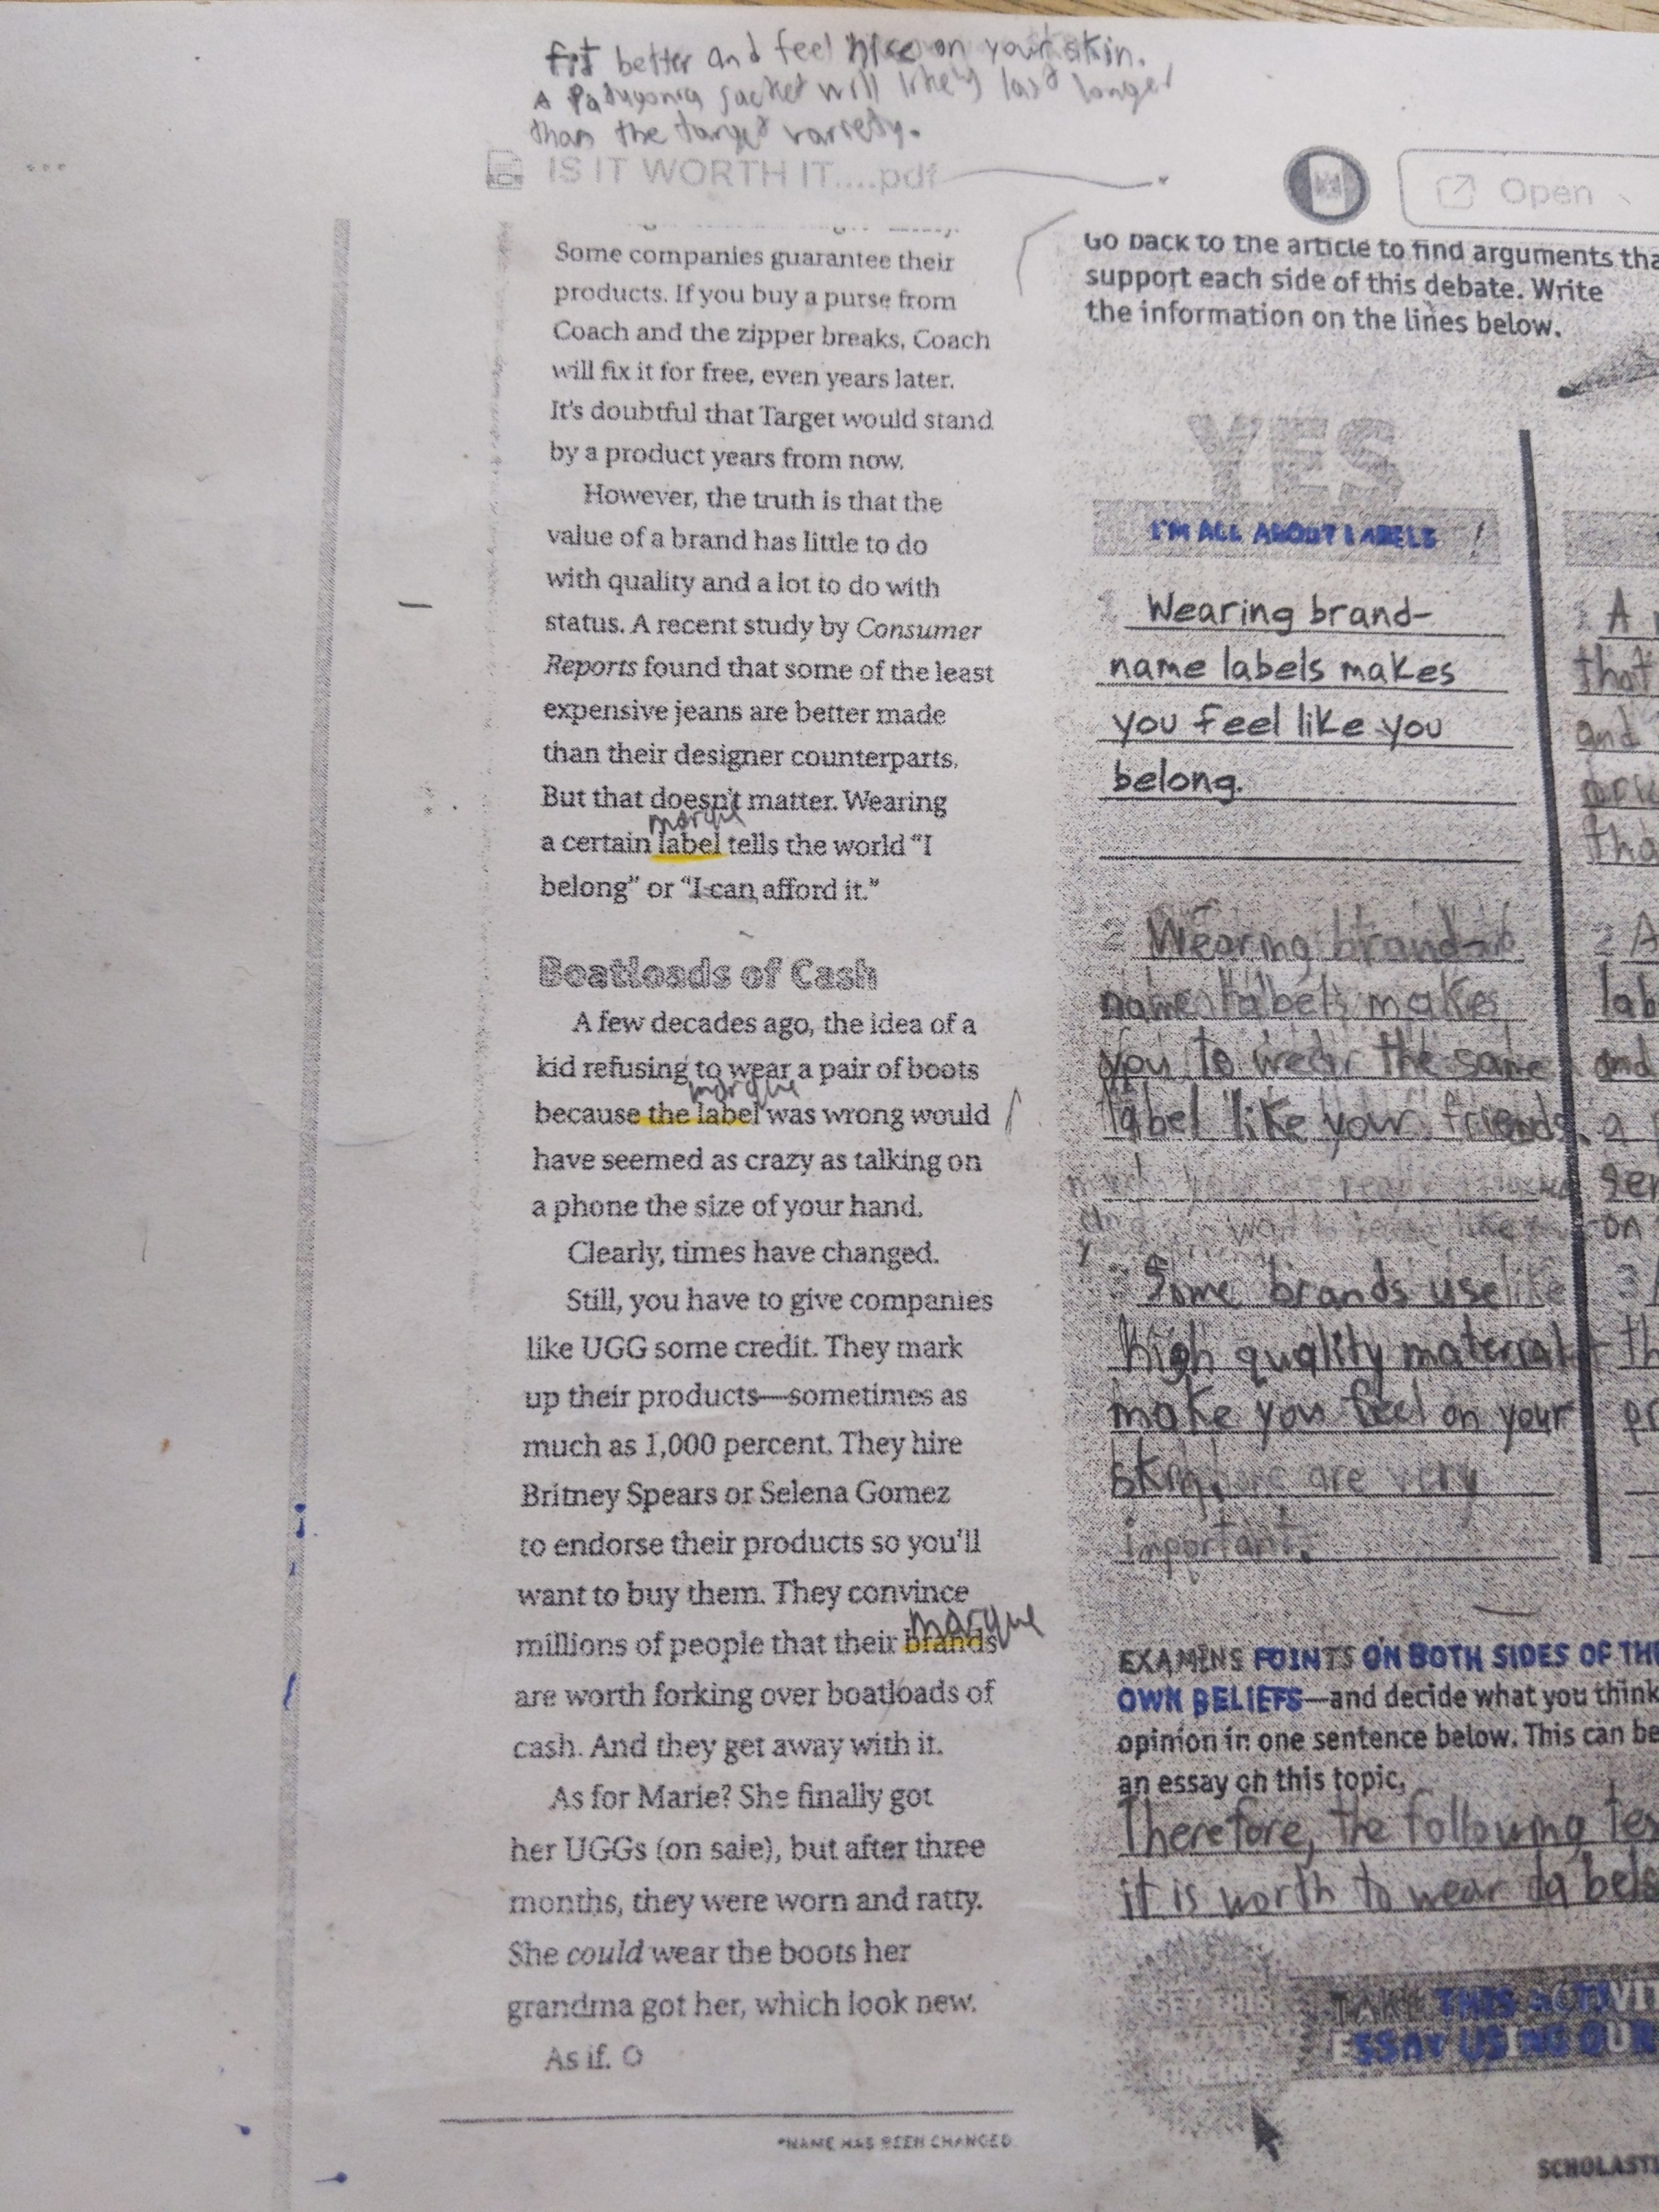 fit better and feel nice on your skin.
A Patagonia jacket will likely last longer
than the target variety.
IS IT WORTH IT....pdf
Open
Some companies guarantee their
products. If you buy a purse from
Coach and the zipper breaks, Coach
will fix it for free, even years later.
It's doubtful that Target would stand
by a product years from now.
However, the truth is that the
value of a brand has little to do
with quality and a lot to do with
status. A recent study by Consumer
Reports found that some of the least
expensive jeans are better made
than their designer counterparts.
But that doesn't matter. Wearing
marque
a certain label tells the world "I
belong" or "I can afford it."
Boatloads of Cash
A few decades ago, the idea of a
kid refusing to wear a pair of boots
marque
because the label was wrong would
have seemed as crazy as talking on
a phone the size of your hand.
Clearly, times have changed.
Still, you have to give companies
like UGG some credit. They mark
up their products—sometimes as
much as 1,000 percent. They hire
Britney Spears or Selena Gomez
to endorse their products so you'll
want to buy them. They convince
marque
millions of people that their brands
are worth forking over boatloads of
cash. And they get away with it.
As for Marie? She finally got
her UGGs (on sale), but after three
months, they were worn and ratty.
She could wear the boots her
grandma got her, which look new.
As if.
*NAME HAS BEEN CHANGED
Go back to the article to find arguments tha
support each side of this debate. Write
the information on the lines below.
YES
I'M ALL ABOUT LABELS!
1 Wearing brand-
name labels makes
you feel like you
belong.
2 Wearing brand-
name labels makes
you to wear the same
label like your friends.
3 Some brands use
high quality material
make you feel on your
skin, are very
important.
1 A
that
and
tha
2 A
lab
and
a
ser
on
3
th
pr
EXAMINE POINTS ON BOTH SIDES OF THE
OWN BELIEFS—and decide what you think
opinion in one sentence below. This can be
an essay on this topic.
Therefore, the following tex
it is worth to wear labels
TAKE THIS ACTIVIT
ESSAY USING OUR
SCHOLASTI